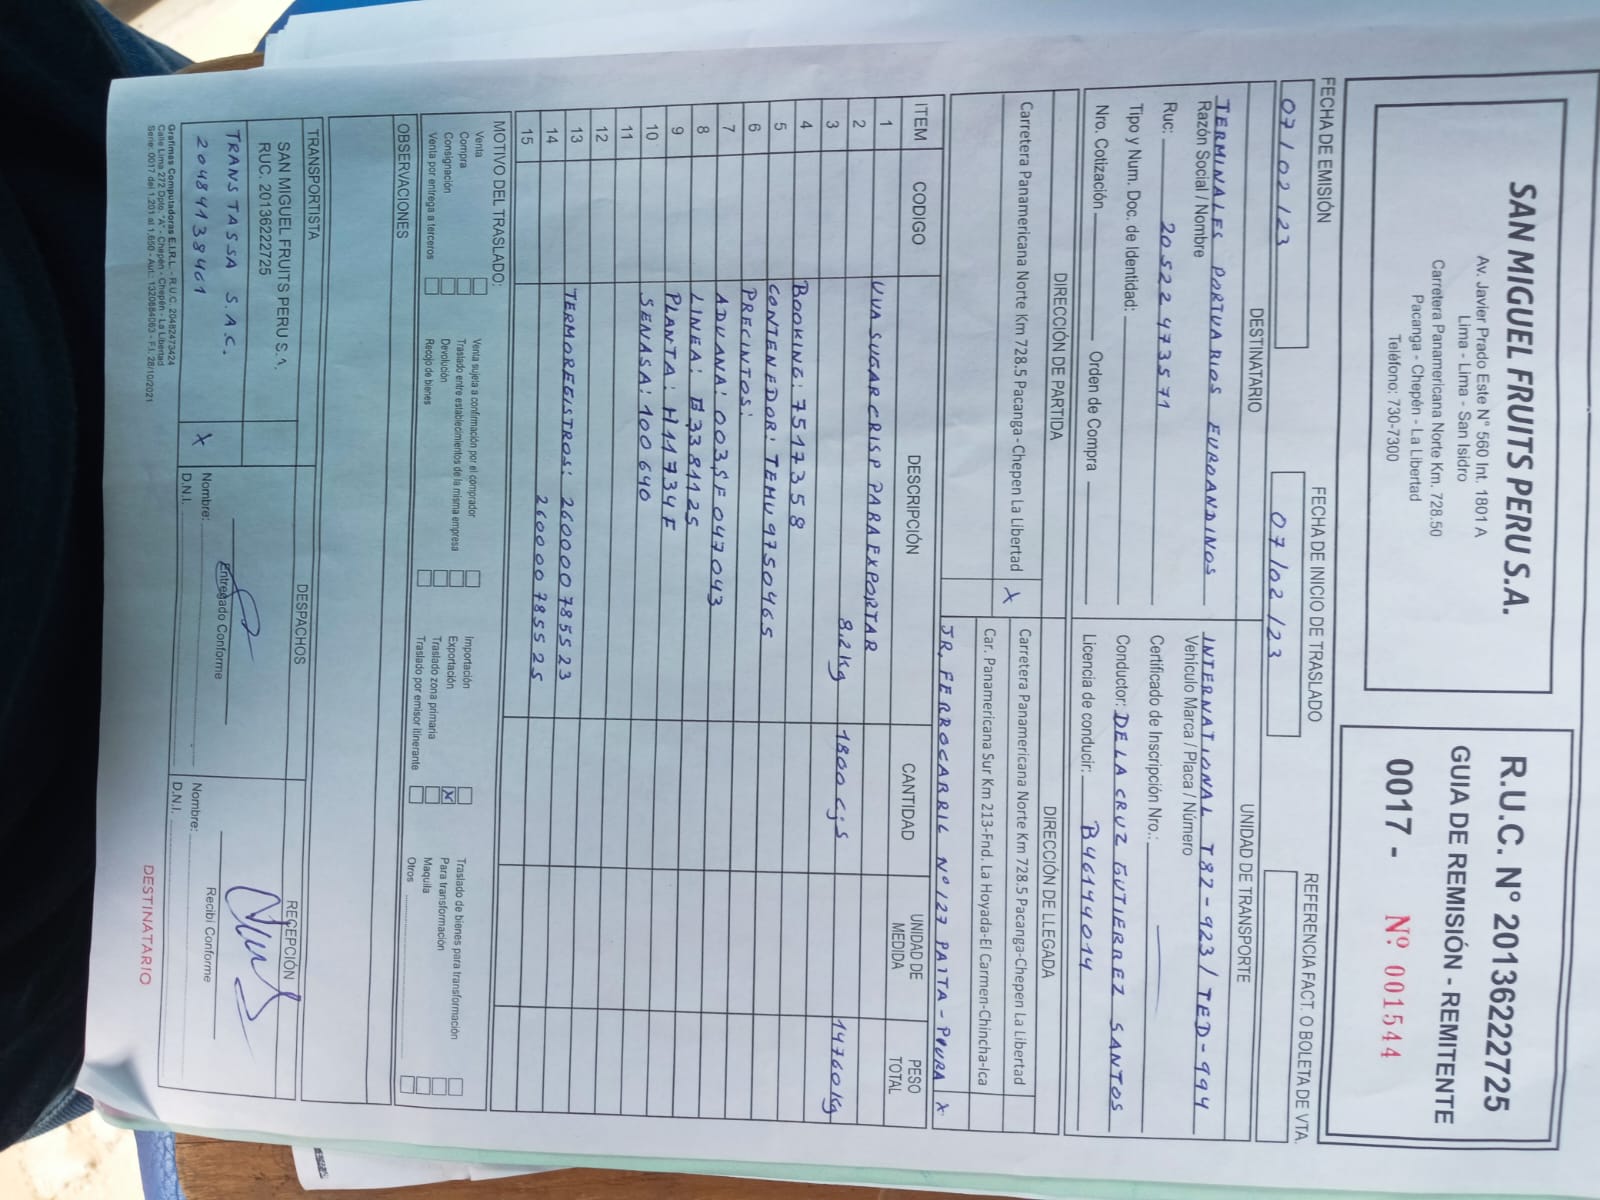 SAN MIGUEL FRUITS PERU S.A.
Av. Javier Prado Este N° 560 Int. 1801 A
Lima - Lima - San Isidro
Carretera Panamericana Norte Km. 728.50
Pacanga - Chepén - La Libertad
Teléfono: 730-7300
R.U.C. N° 20136222725
GUIA DE REMISIÓN - REMITENTE
0017 - Nº 001544
FECHA DE EMISIÓN
07/02/23
FECHA DE INICIO DE TRASLADO
07/02/23
REFERENCIA FACT. O BOLETA DE VTA.
DESTINATARIO
TERMINALES PORTUARIOS EUROANDINOS
Razón Social / Nombre
Ruc: 20522473571
Tipo y Num. Doc. de Identidad:
Nro. Cotización Orden de Compra
UNIDAD DE TRANSPORTE
INTERNATIONAL T82-923 / TED-994
Vehículo Marca / Placa / Número
Certificado de Inscripción Nro.:
Conductor: DE LA CRUZ GUTIERREZ SANTOS
Licencia de conducir: B46144014
DIRECCIÓN DE PARTIDA
Carretera Panamericana Norte Km 728.5 Pacanga - Chepen La Libertad X
DIRECCIÓN DE LLEGADA
Carretera Panamericana Norte Km 728.5 Pacanga-Chepen La Libertad
Car. Panamericana Sur Km 213-Fnd. La Hoyada-El Carmen-Chincha-Ica
JR. FERROCARRIL Nº 127 PAITA - PIURA X
ITEM CODIGO DESCRIPCIÓN CANTIDAD UNIDAD DE MEDIDA PESO TOTAL
1 UVA SUGARCRISP PARA EXPORTAR
2 8.2 Kg 1800 cjs 14760 Kg
3
4 BOOKING: 7517358
5 CONTENEDOR: TEMU9750465
6 PRECINTOS:
7 ADUANA: 003,SF047043
8 LINEA: E3381125
9 PLANTA: H11734F
10 SENASA: 100640
11
12
13 TERMOREGISTROS: 260000785523
14 260000785525
15
MOTIVO DEL TRASLADO:
Venta
Compra
Consignación
Venta por entrega a terceros
Venta sujeta a confirmación por el comprador
Traslado entre establecimientos de la misma empresa
Devolución
Recojo de bienes
Importación
Exportación X
Traslado zona primaria
Traslado por emisor itinerante
Traslado de bienes para transformación
Para transformación
Maquila
Otros
OBSERVACIONES
TRANSPORTISTA
SAN MIGUEL FRUITS PERU S.A.
RUC. 20136222725
TRANS TASSA S.A.C.
20484138461 X
DESPACHOS
Entregado Conforme
Nombre:
D.N.I.
RECEPCIÓN
Recibi Conforme
Nombre:
D.N.I.
Grafimes Computadoras E.I.R.L. - R.U.C. 20482473424
Calle Lima 272 Dpto. "A" - Chepén - Chepén - La Libertad
Serie: 0017 del 1,201 al 1,650 - Aut.: 1320884063 - F.I. 28/10/2021
DESTINATARIO